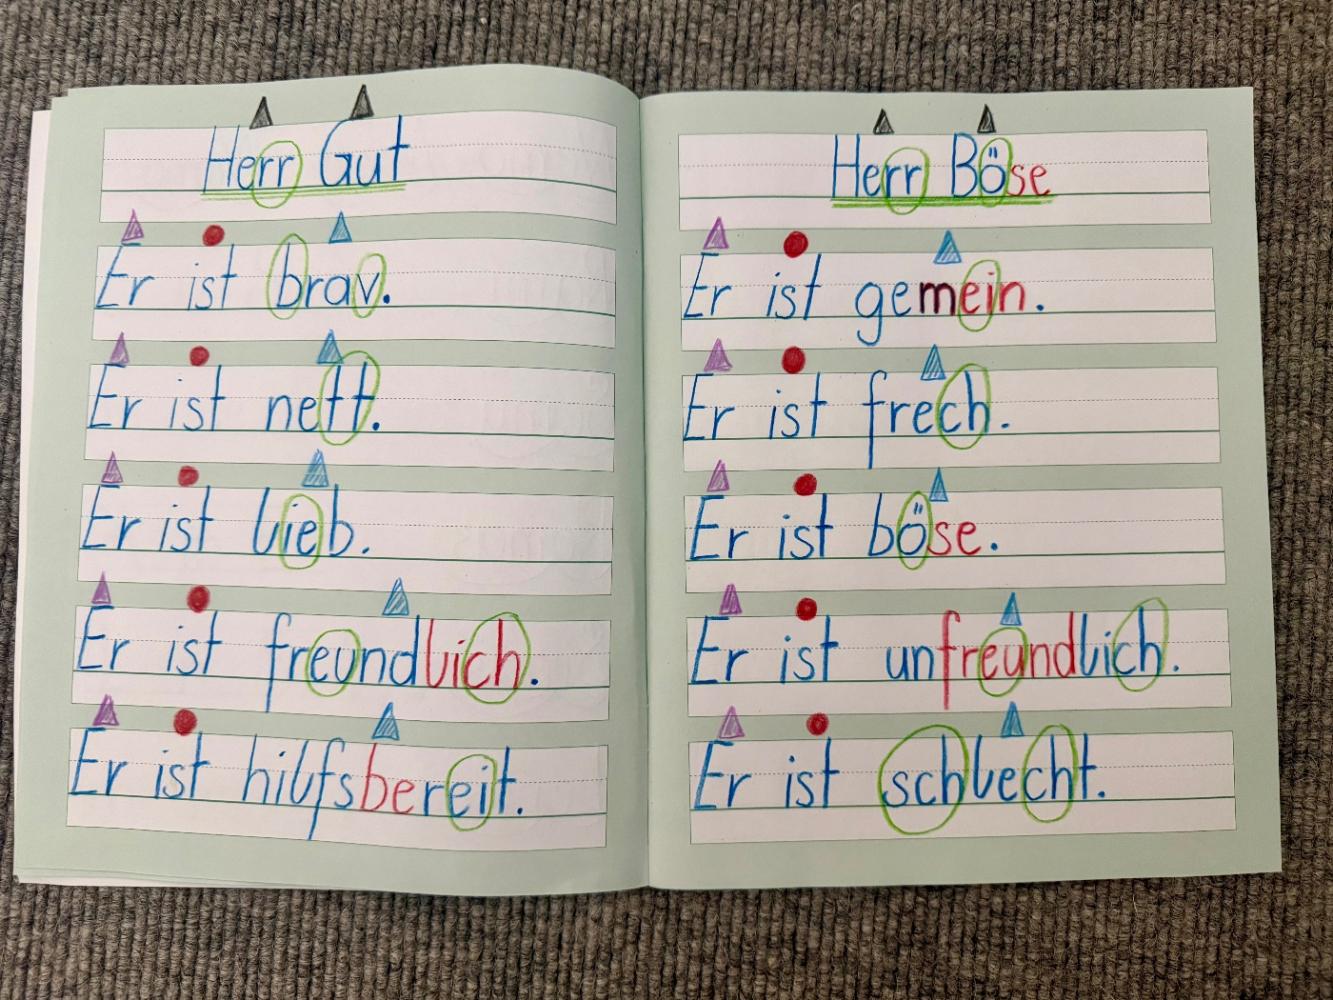 Herr Gut
Er ist brav.
Er ist nett.
Er ist lieb.
Er ist freundlich.
Er ist hilfsbereit.
Herr Böse
Er ist gemein.
Er ist frech.
Er ist böse.
Er ist unfreundlich.
Er ist schlecht.